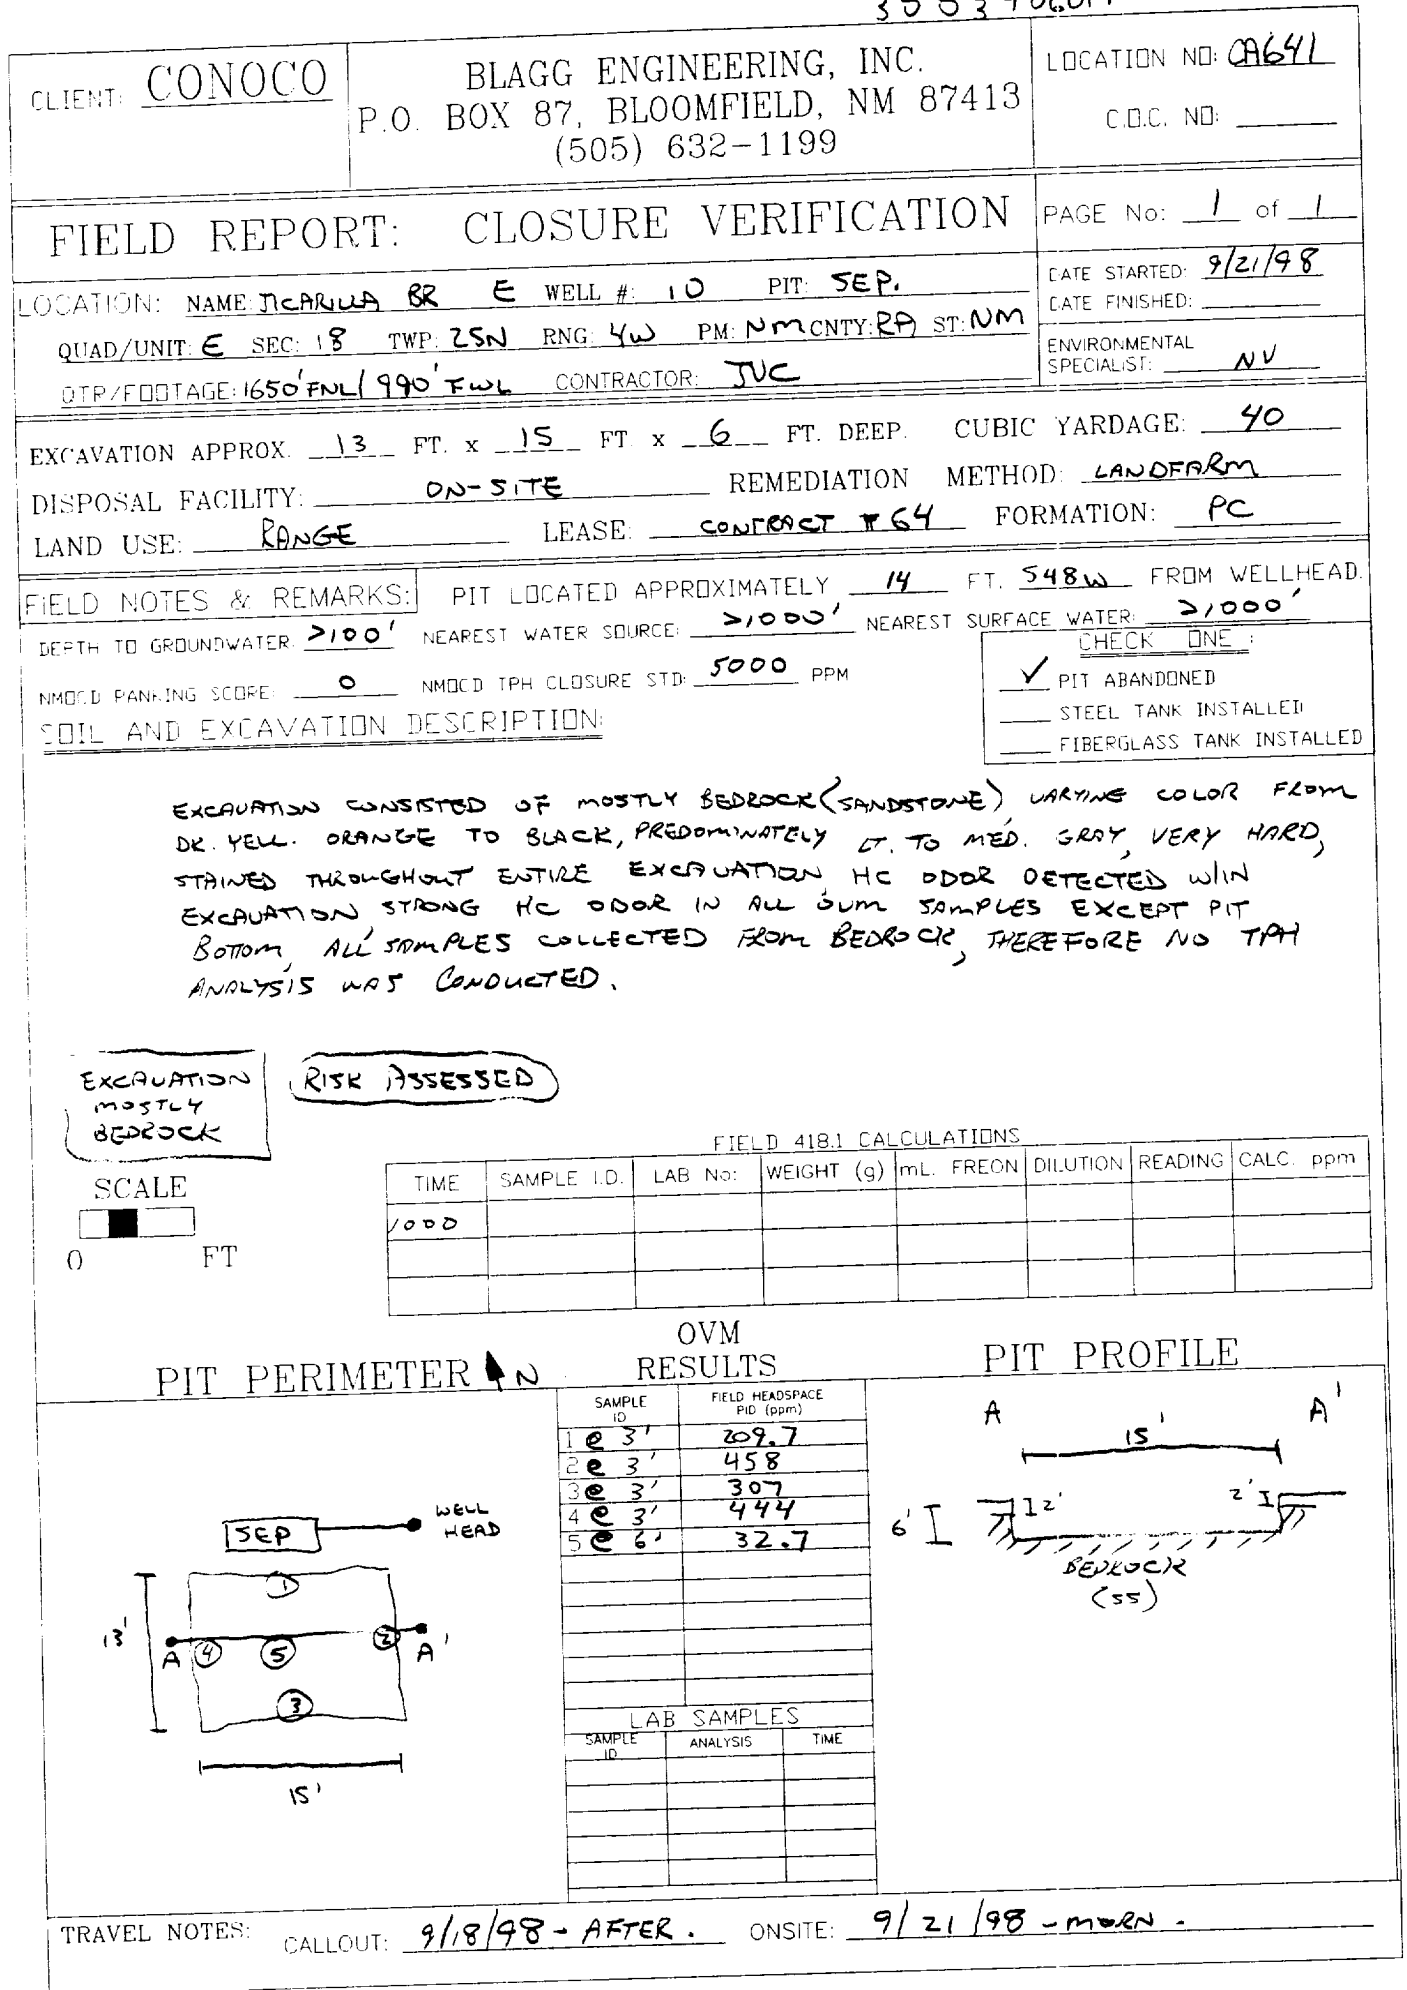 CLIENT: CONOCO
BLAGG ENGINEERING, INC.
P.O. BOX 87, BLOOMFIELD, NM 87413
(505) 632-1199
LOCATION NO: CA641
C.O.C. NO:
FIELD REPORT: CLOSURE VERIFICATION
PAGE No: 1 of 1
LOCATION: NAME: JICARILLA BR E WELL #: 10 PIT: SEP.
QUAD/UNIT: E SEC: 18 TWP: 25N RNG: 4W PM: NM CNTY: RA ST: NM
QTR/FOOTAGE: 1650'FNL/990'FWL CONTRACTOR: JVC
DATE STARTED: 9/21/98
DATE FINISHED:
ENVIRONMENTAL
SPECIALIST: NV
EXCAVATION APPROX. 13 FT. x 15 FT x 6 FT. DEEP. CUBIC YARDAGE: 40
DISPOSAL FACILITY: ON-SITE REMEDIATION METHOD: LANDFARM
LAND USE: RANGE LEASE: CONTRACT #64 FORMATION: PC
FIELD NOTES & REMARKS: PIT LOCATED APPROXIMATELY 14 FT. S48W FROM WELLHEAD.
DEPTH TO GROUNDWATER: >100' NEAREST WATER SOURCE: >1000' NEAREST SURFACE WATER: >1000'
NMOCD RANKING SCORE: 0 NMOCD TPH CLOSURE STD: 5000 PPM
CHECK ONE :
✓ PIT ABANDONED
STEEL TANK INSTALLED
FIBERGLASS TANK INSTALLED
SOIL AND EXCAVATION DESCRIPTION:
EXCAVATION CONSISTED OF MOSTLY BEDROCK (SANDSTONE) VARYING COLOR FROM
DK. YELL. ORANGE TO BLACK, PREDOMINATELY LT. TO MED. GRAY, VERY HARD,
STAINED THROUGHOUT ENTIRE EXCAVATION, HC ODOR DETECTED W/IN
EXCAVATION, STRONG HC ODOR IN ALL OVM SAMPLES EXCEPT PIT
BOTTOM, ALL SAMPLES COLLECTED FROM BEDROCK, THEREFORE NO TPH
ANALYSIS WAS CONDUCTED.
EXCAVATION
MOSTLY
BEDROCK
RISK ASSESSED
SCALE
0 FT
FIELD 418.1 CALCULATIONS
TIME SAMPLE I.D. LAB No: WEIGHT (g) mL. FREON DILUTION READING CALC. ppm
1000
PIT PERIMETER N
13'
SEP
WELL
HEAD
1
A 4 5 2 A'
3
15'
OVM
RESULTS
SAMPLE ID FIELD HEADSPACE PID (ppm)
1 @ 3' 209.7
2 @ 3' 458
3 @ 3' 307
4 @ 3' 444
5 @ 6' 32.7
LAB SAMPLES
SAMPLE ID ANALYSIS TIME
PIT PROFILE
A A'
15'
6' 2' 2'
BEDROCK
(SS)
TRAVEL NOTES: CALLOUT: 9/18/98 - AFTER. ONSITE: 9/21/98 - MORN.